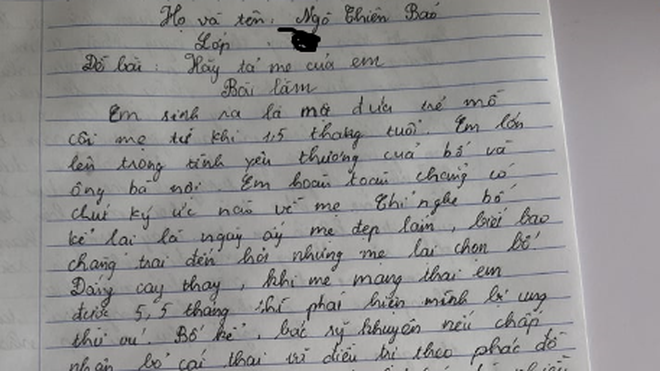 Họ và tên: Ngô Thiên Bảo
Lớp :
Đề bài : Hãy tả mẹ của em
Bài làm
Em sinh ra là một đứa trẻ mồ
côi mẹ từ khi 1,5 tháng tuổi. Em lớn
lên trong tình yêu thương của bố và
ông bà nội. Em hoàn toàn chẳng có
chút ký ức nào về mẹ. Chỉ nghe bố
kể lại là ngày ấy mẹ đẹp lắm, biết bao
chàng trai đến hỏi nhưng mẹ lại chọn bố.
Đắng cay thay, khi mẹ mang thai em
được 5,5 tháng thì phát hiện mình bị ung
thư vú. Bố kể, bác sỹ khuyên nếu chấp
nhận bỏ cái thai trị điều trị theo phác đồ